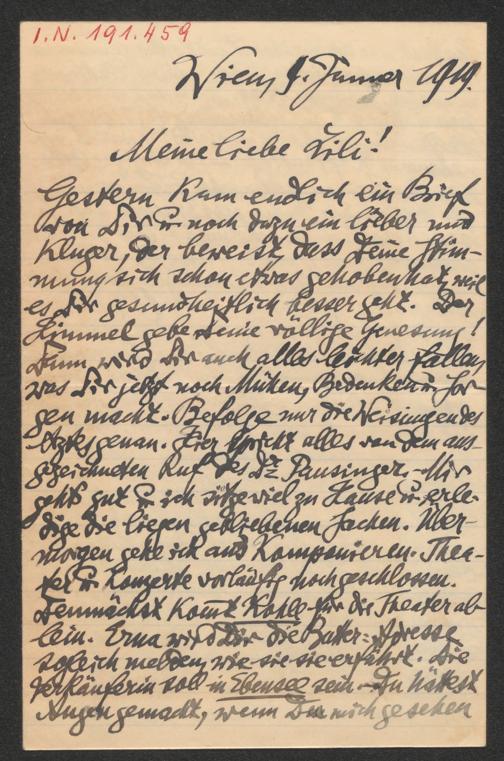 I.N. 191.459
Wien, 9. Jänner 1919.
Meine liebe Lili!
Gestern kam endlich ein Brief
von Dir u noch dazu ein lieber und
kluger, der beweist, dass Deine Stim-
mung sich schon etwas gehoben hat, weil
es Dir gesundheitlich besser geht. Der
Himmel gebe Deine völlige Genesung!
Dann wird Dir auch alles leichter fallen,
was Dir jetzt noch Mühen, Bedenken u. Sor-
gen macht. Befolge nur die Weisungen des
Arztes genau. Hier spricht alles von dem aus-
gezeichneten Ruf des Dr Pausinger. – Mir
geht gut u ich sitze viel zu Hause u. erle-
dige die liegen gebliebenen Sachen. Über-
morgen gehe ich ans Komponieren. Thea-
ter u. Konzerte vorläufig noch geschlossen.
Demnächst komt Kohle für die Theater al-
lein. Erna wird Dir die Butter-Adresse
sogleich melden, wie sie sie erfährt. Die
Verkäuferin soll in Ebensee sein – Du hättest
Augen gemacht, wenn Du mich gesehen